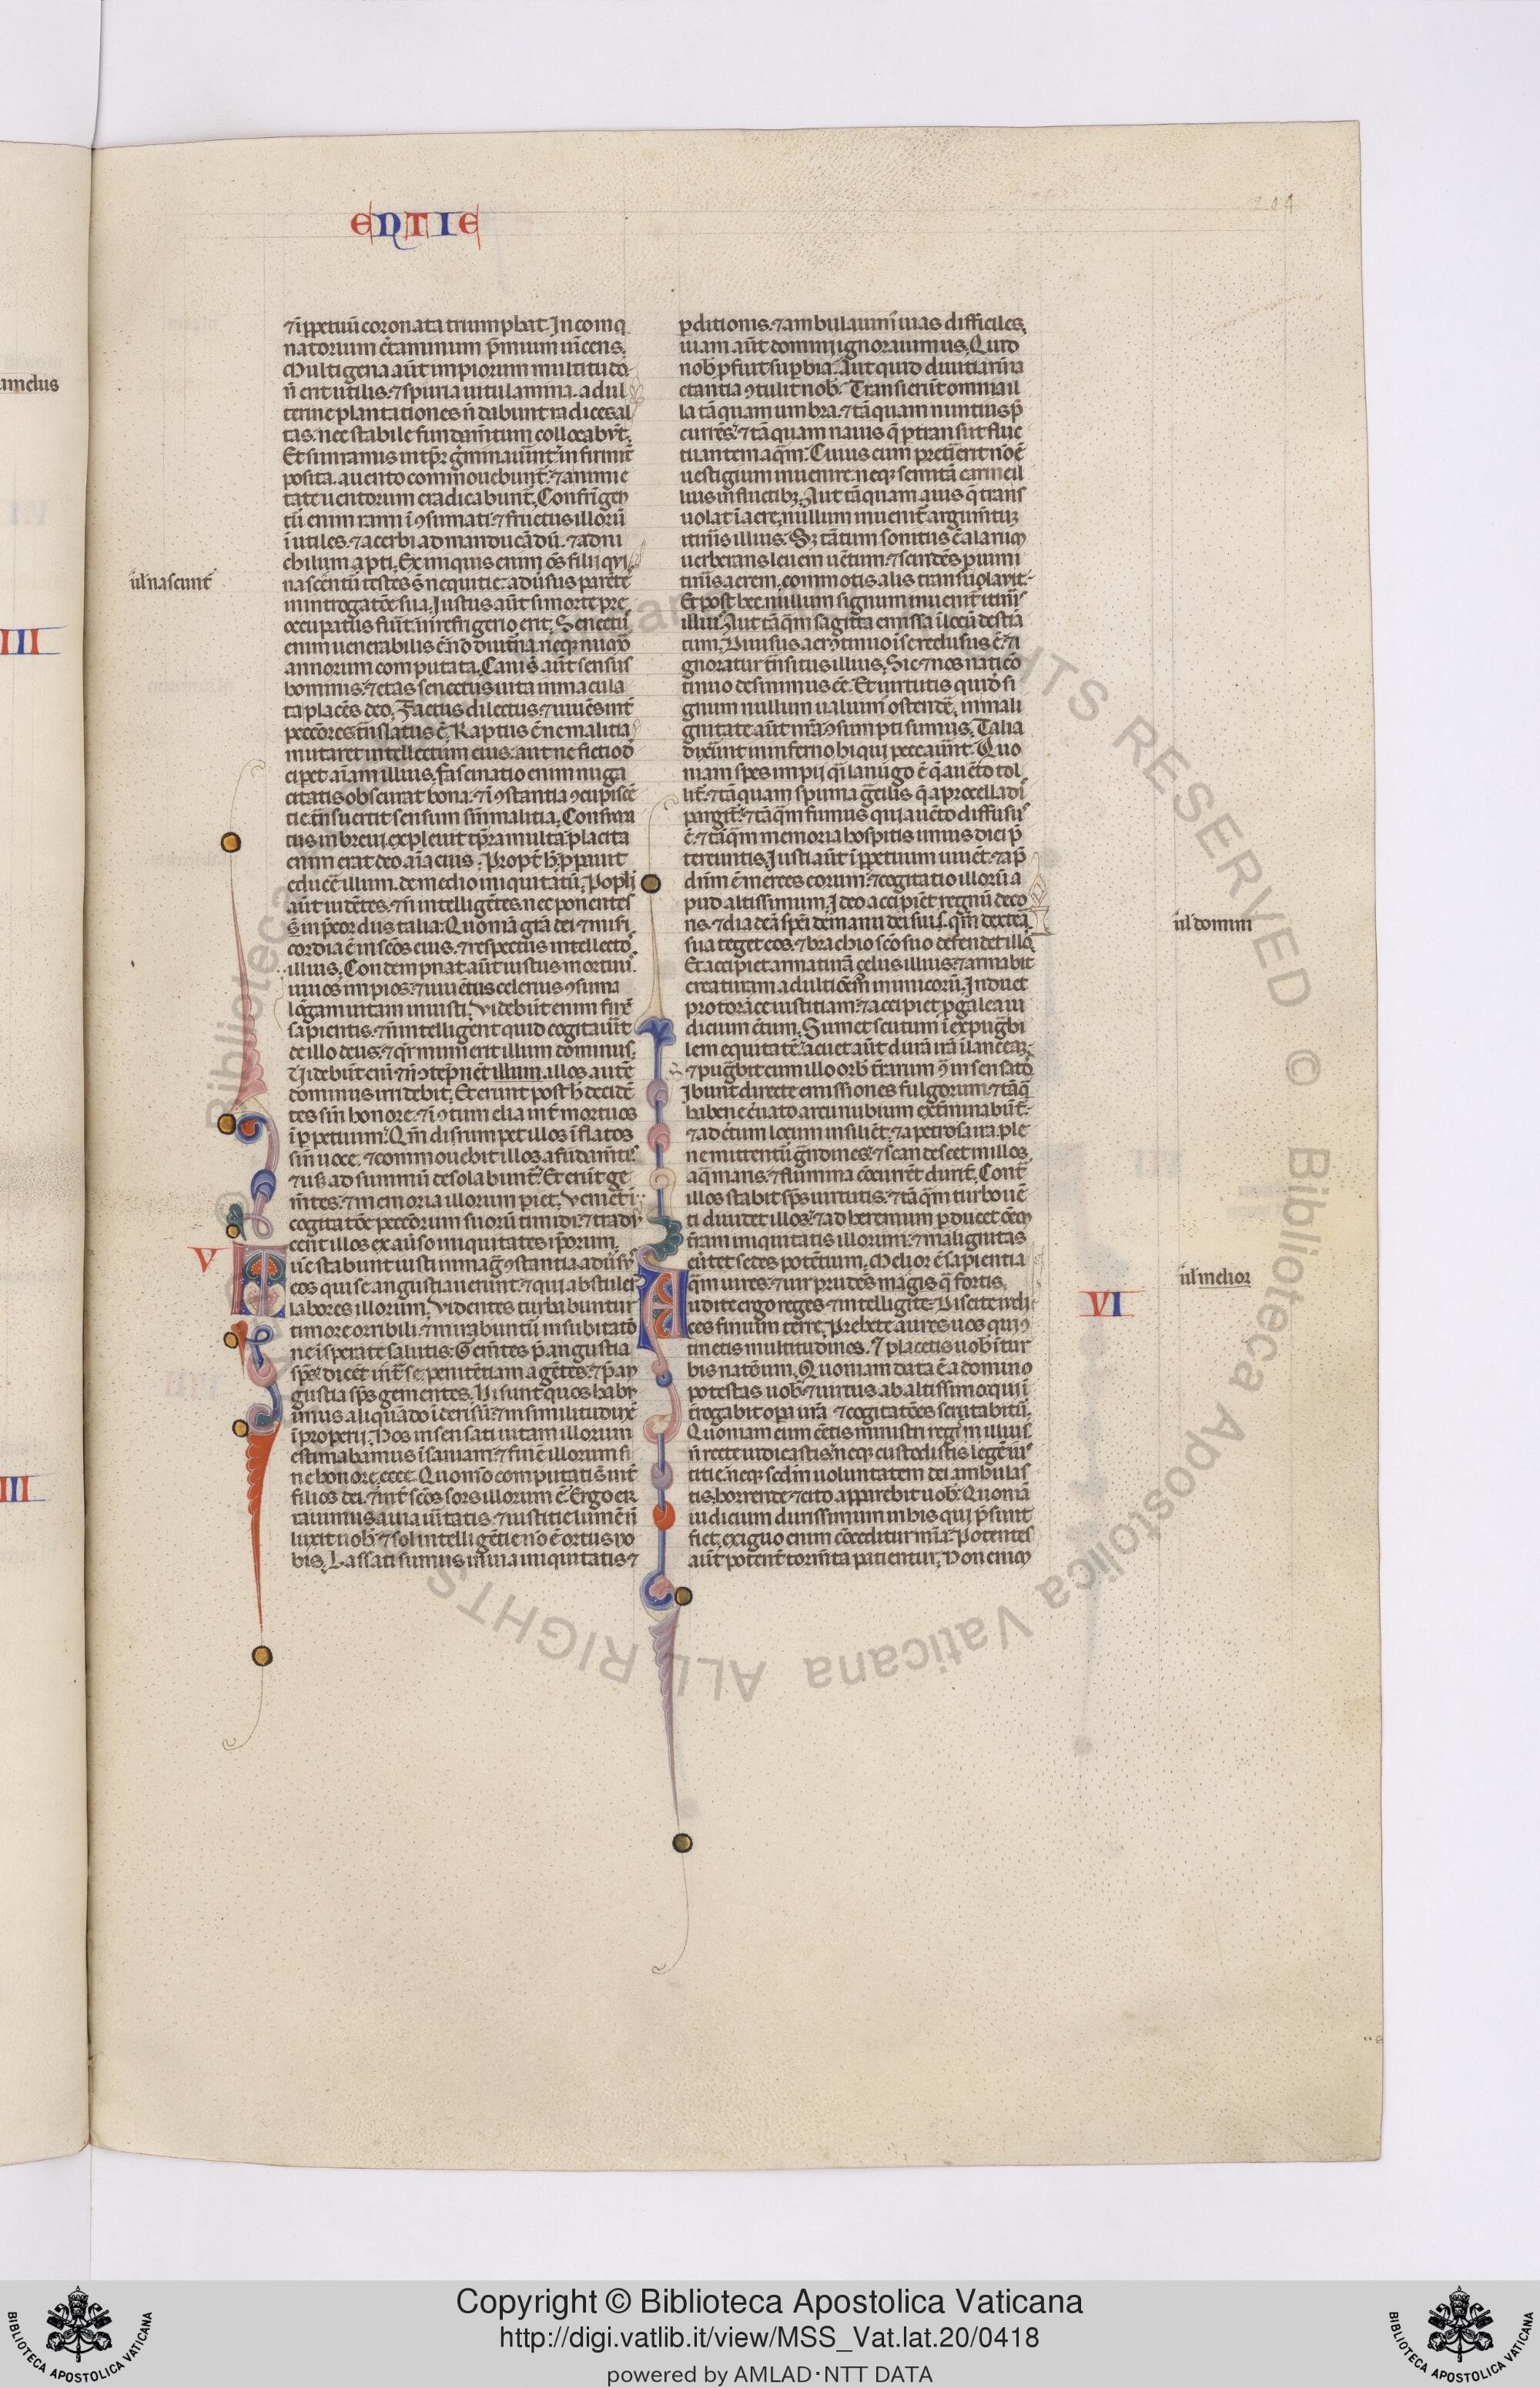 ENTIE
204
⁊ ip̄petuū coronata triumphat. Incoinq̄
natorium c̄taminum p̄mium uincens.
Multigena aūt impiorum multitudo
n̄ erit utilis. ⁊ spuria uitulamina. adul
terine plantationes n̄ dabunt radices al
tas. nec stabile fundam̄tum collocabūt.
posita. a uento commouebunt̄. ⁊ a nimie
tate uentorum eradicabunt̄. Confrīgen
tū enim rami ī ꝯsumati. ⁊ fructus illorū
īutiles. ⁊ acerbi ad manducādū. ⁊ ad ni
chilum apti. Ex iniquis enim oēs filii qui
nascūtū testes s̄ nequitie. aduersus parētes
in introgatōe sua. Iustus aūt si morte pre
occupatus fuīt. in refrigerio erit. Senectus
enim uenerabilis ē n̄ diuturna. neq; numero
annorum computata. Cani s̄ aūt sensus
hominis. ⁊ etas senectutis uita inmacula
ta placēs deo. Factus dilectus. ⁊ uiuēs int̄
peccōres t̄nslatus ē. Raptus ē ne malitia
mutaret intellectum eius. aut ne fictio d
ecipet aīam illius. fascinatio enim nuga
citatis obscurat bona. ⁊ ī ꝯstantia ꝯcupiscē
tie t̄nsuertit sensum sin̄ malitia. Consuma
tus in breui. expleuit tp̄ra multa. placita
enim erat deo aīa eius. Propt̄ h̄ pp̄auit
educē illum. de medio iniquitatū. Popli
aūt uidētes. ⁊ n̄ intelligētes. nec ponentes
s̄ in p̄cordiis talia. Quoniā grā dei ⁊ miseri
cordia ē in scōs eius. ⁊ respectus in electos
illius. Condempnat aūt iustus mortuus
uiuos impios. ⁊ iuuētus celerius ꝯsuma
lōgam uitam iniusti. Videbūt enim finē
sapientis. ⁊ n̄ intelligent quid cogitauīt
de illo deus. ⁊ q̄r munierit illum dominus.
Videbūt eni ⁊ ꝯtēpnēt illum. illos autē
dominus irridebit. Et erunt post h̄ decidē
tes sin̄ honore. ⁊ ī ꝯtumelia int̄ mortuos
ī ꝑpetuum. Qm̄ disrumpet illos īflatos
sin̄ uoce. ⁊ commouebit illos a fūdam̄tis
⁊ usq; ad summū desolabunt̄. Et erūt ge
m̄tes. ⁊ memoria illorum piet. Veniēt ī
cogitatōe peccōrum suorū timidi. ⁊ tradu
cent illos ex aduerso iniquitates ip̄orum.
V
Tūc stabunt iusti in maḡ ꝯstantia. adu̇sus
eos qui se angustiauerunt. ⁊ qui abstulerūt
labores illorum. Videntes turbabuntur
timore orribili. ⁊ mirabuntū in subitatō
ne isperate salutis. Gem̄tes p̄ angustia
sps̄. dicēt int̄ se penitētiam agētes. ⁊ p̄ an
gustia sps̄ gementes. Hi sunt quos habu
imus aliquādo ī derisū. ⁊ in similitudinē
īproperii. Nos insensati uitam illorum
estimabamus īsaniam. ⁊ finē illorum si
ne honore. ecce. Quomō computati s̄ int̄
filios dei. ⁊ int̄ scōs sors illorum ē. Ergo er
rauimus a uia ūitatis. ⁊ iustitie lumē n̄
luxit nob̄. ⁊ sol intelligētie nō ē ortus no
bis. Lassati sumus in uia iniquitatis ⁊
ꝑditionis. ⁊ ambulauim̄ uias difficiles.
uiam aūt domini ignorauimus. Quid
nob̄ ꝓfuit suꝑbia. Aut quid diuitiarū ia
ctantia ꝯtulit nob̄. Transierūt omnia il
la tāquam umbra. ⁊ tāquam nuntius p̄
currēs. ⁊ tāquam nauis q̄ ptransit fluc
tuantem aqm̄. Cuius cum pretierit nō ē
uestigium inuenire. neq; semitā carine il
lius in fluctibꝫ. Aut tāquam auis q̄ trans
uolat ī aere. nullum inuenit̄ argum̄tum
itineris illius. Sꝫ tātum sonitus ēalarum
uerberans leuem uētum. ⁊ scindēs p uim
itineris aerem. commotis alis transuolauit.
Et post hec nullum signum inuenit̄ itineris
illius. Aut tāqm̄ sagitta emissa ī locū destīa
tum. Diuisus aer ꝯtinuo ī se reclusus ē. ⁊ i
gnoratur t̄nsitus illius. Sic ⁊ nos nati cō
tinuo desinimus eē. Et uirtutis quid̄ si
gnum nullum ualuim̄ ostendē. in mali
gnitate aūt nr̄a ꝯsumpti sumus. Talia
dixerūt in inferno hi qui peccauīnt. Quo
niam spes impii q̄si lanugo ē q̄ a uēto tol
lit̄. ⁊ tāquam spuma gracilis q̄ a procella di
spargit̄. ⁊ tāqm̄ fumus qui a uēto diffusus
ē. ⁊ tāqm̄ memoria hospitis unius diei p̄
tereuntis. Iusti aūt ī ꝑpetuum uiuēt. ⁊ ap̄
dn̄m ē merces eorum. ⁊ cogitatio illorū a
pud altissimum. Ideo accipiēt regnū deco
ris. ⁊ diadēa spēi de manu dei sui. qm̄ dextera
sua teget eos. ⁊ brachio scō suo defendet illos.
Et accipiet armaturā zelus illius. ⁊ armabit
creaturam ad ultiōem inimicorū. Induet
pro torace iustitiam. ⁊ accipiet ꝓ galea iu
dicium c̄tum. Sumet scutum īexpugnabi
lem equitatē. acuet aūt durā irā ī lanceam.
⁊ pugnabit cum illo orb̄ t̄rarum ꝯ insensatos.
Ibunt directe emissiones fulgorum. ⁊ tāq̄
habene curuato arcu nubium ext̄minabūt̄.
⁊ ad c̄tum locum insiliēt. ⁊ a petrosa ira ple
ne mittentū grandines. ⁊ scandescet in illos
aq̄ maris. ⁊ flumina cōcurrēt durit̄. Cont̄
illos stabit sps̄ uirtutis. ⁊ tāqm̄ turbo uē
ti diuidet illos. ⁊ ad heremum ꝑducet oēm
t̄ram iniquitatis illorum. ⁊ malignitas
eu̇tet sedes potētium. Melior ē sapientia
qm̄ uires. ⁊ uir prudēs magis q̄ fortis.
VI
Audite ergo reges ⁊ intelligite. Discite iudi
ces finium terre. Prebete aures uos qui ꝯ
tinetis multitudines. ⁊ placetis uob̄ ī tur
bis natōum. Quoniam data ē a domino
potestas uob̄. ⁊ uirtus ab altissimo. qui ī
t̄rogabit oꝑa ur̄a ⁊ cogitatōes scrutabitū.
Quoniam cum eētis ministri regni illius
n̄ recte iudicastis. neq; custodistis legē ius
titie. neq; scd̄m uoluntatem dei ambulas
tis. horrende ⁊ cito apparebit uob̄. Quoniā
iudicium durissimum in his qui p̄sunt
fiet. exiguo enim cōceditur mīa. Potentes
aūt potent̄ torm̄ta patientur. Non enim
amelus
ul̄ nascunt̄
III
III
ul̄ domini
ul̄ melior
© Biblioteca Apostolica Vaticana ALL RIGHTS RESERVED © Biblioteca Apostolica Vaticana ALL RIGHTS
Copyright © Biblioteca Apostolica Vaticana
http://digi.vatlib.it/view/MSS_Vat.lat.20/0418
powered by AMLAD·NTT DATA
BIBLIOTECA APOSTOLICA VATICANA
BIBLIOTECA APOSTOLICA VATICANA